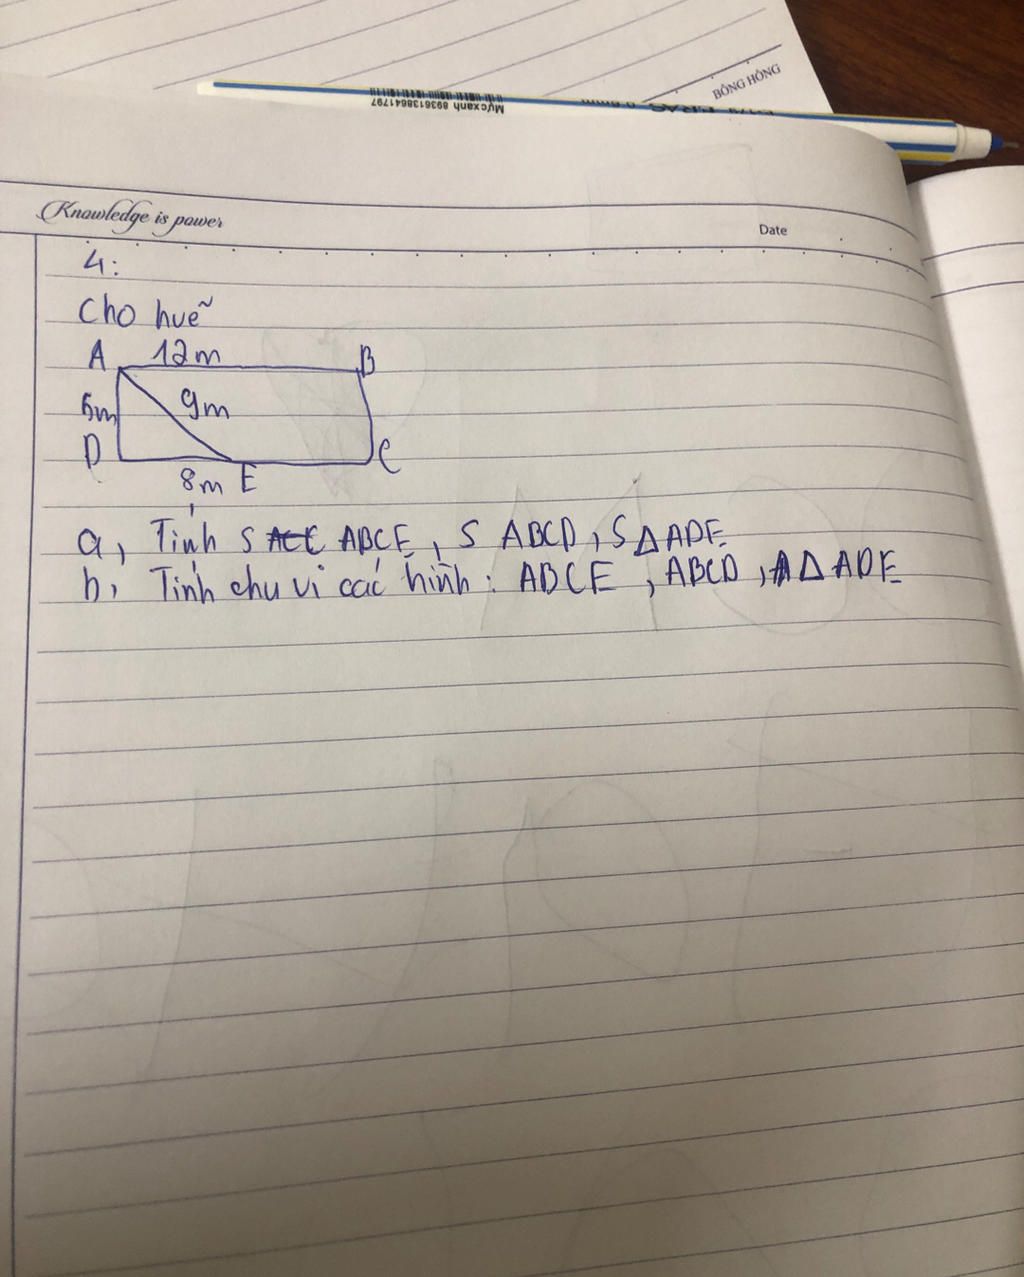 BÔNG HỒNG
Mực xanh 8936138641797
Knowledge is power
Date
4:
Cho huẽ
A 12m B
5m 9m
D C
8m E
a, Tính S ABCE, S ABCD, S Δ ADE
b, Tính chu vi các hình: ABCE, ABCD, Δ ADE